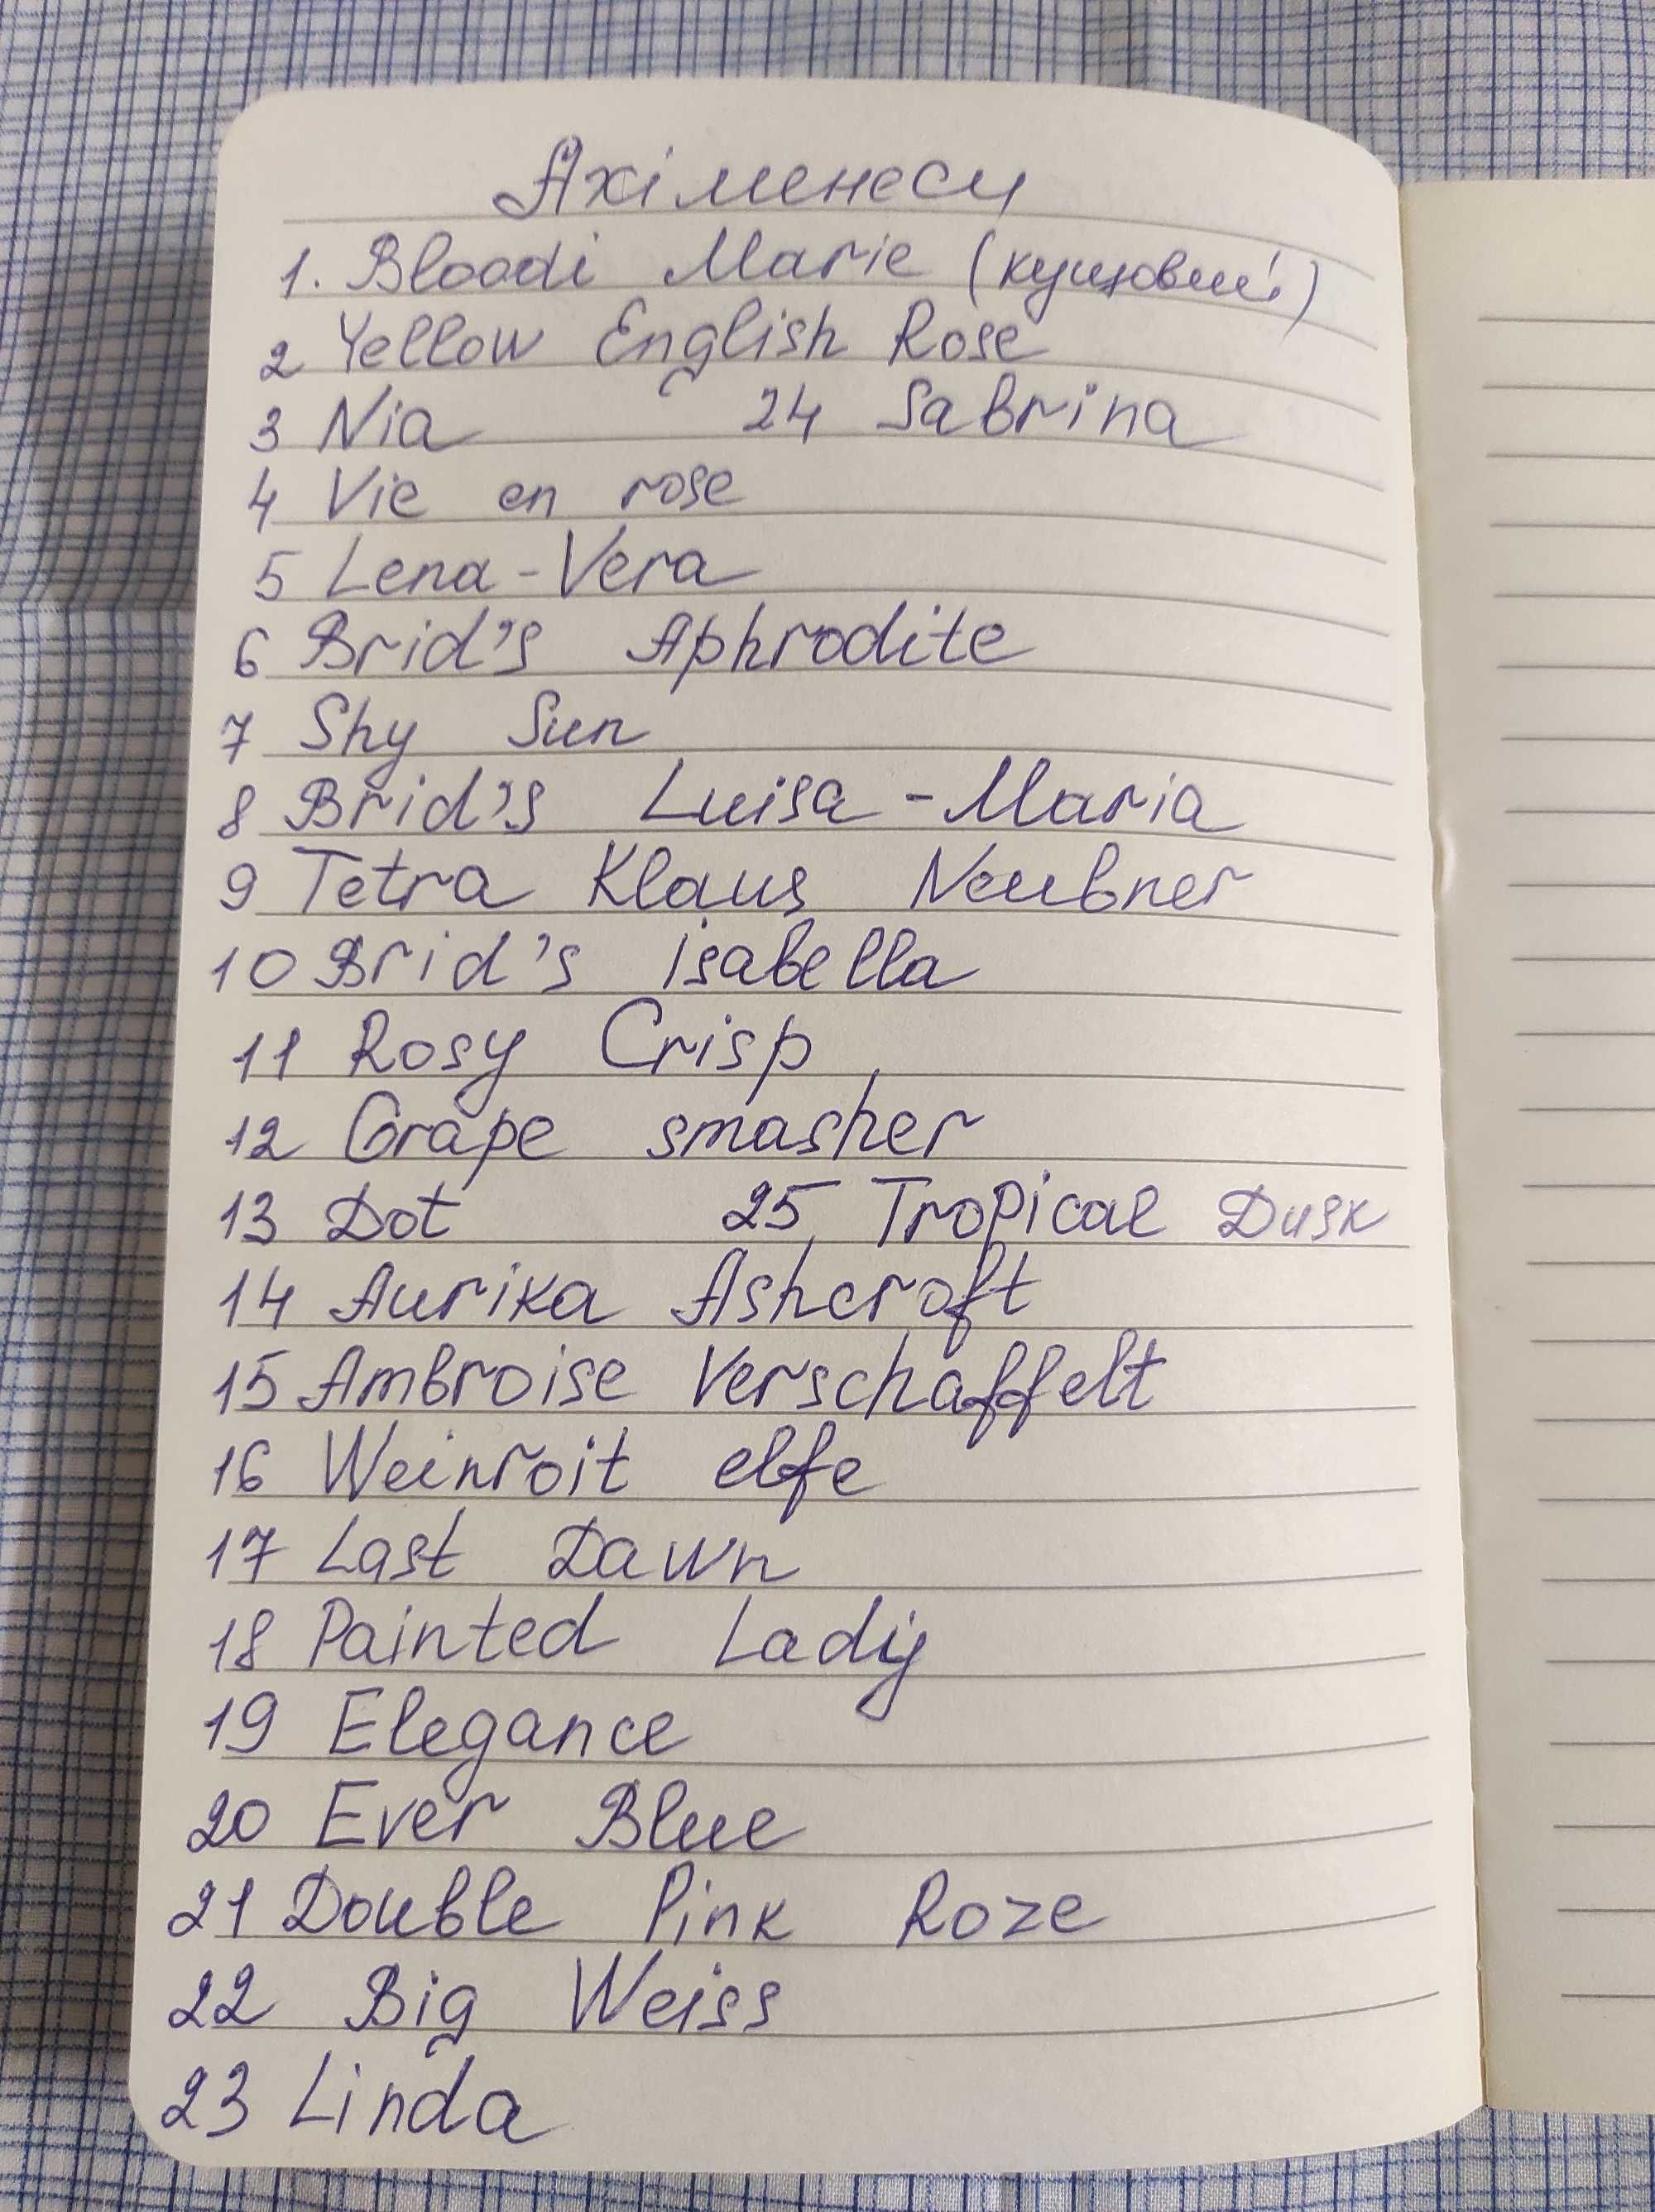 Ахіменеси
1. Bloodi Marie (кущовий)
2 Yellow English Rose
3 Nia 24 Sabrina
4 Vie en rose
5 Lena-Vera
6 Brid's Aphrodite
7 Shy Sun
8 Brid's Luisa-Maria
9 Tetra Klaus Neubner
10 Brid's isabella
11 Rosy Crisp
12 Grape smasher
13 Dot 25 Tropical Dusk
14 Aurika Ashcroft
15 Ambroise Verschaffelt
16 Weinroit elfe
17 Last Dawn
18 Painted Lady
19 Elegance
20 Ever Blue
21 Double Pink Roze
22 Big Weiss
23 Linda